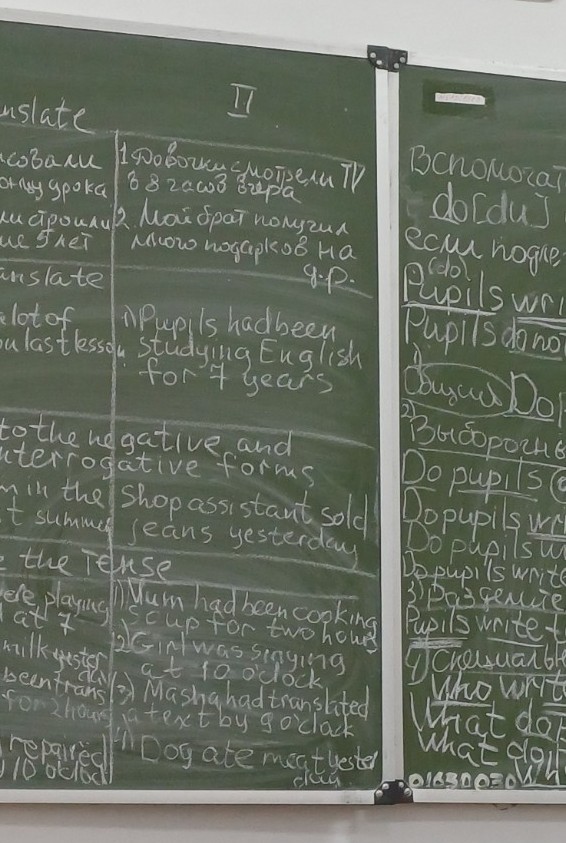 II
anslate
1 Девочки смотрели TV
в 8 часов вчера
2. Мой брат получил
много подарков на
д.р.
совали
онцу урока
ли строили
ие 5 лет
anslate
a lot of
on last lesson
1) Pupils had been
studying English
for 7 years
to the negative and
nterrogative forms
m in the
t summer
Shop assistant sold
jeans yesterday
e the Tense
ere playing
at 7
milk yester
been trans
for 2 hours
repaired
10 o'clock
1) Mum had been cooking
soup for two hours
2) Girl was singing
at 10 o'clock
3) Masha had translated
a text by 9 o'clock
4) Dog ate meat yester
day
Вспомогат
do [du]
если подле
(do)
Pupils wri
Pupils do no
1)
Общий Do
2)
Выборочны
Do pupils
Do pupils wri
Do pupils w
Do pupils write
3) Разделите
Pupils write t
4) Специальн
Who write
What do p
What do
Wh
01630030